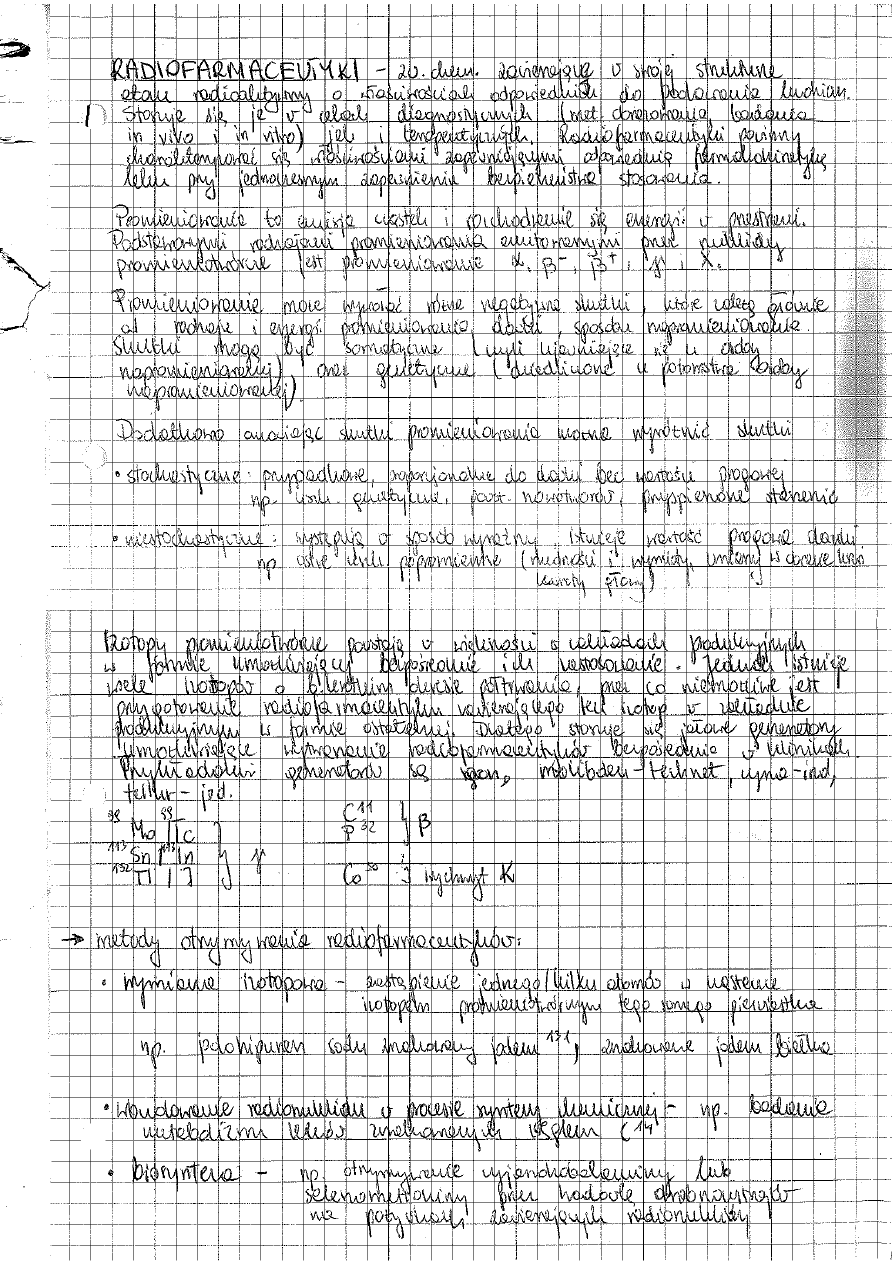 RADIOFARMACEUTYKI - zw. chem. zawierające w swojej strukturze
atom radioaktywny o właściwościach odpowiednich do podawania ludziom.
1) Stosuje się je w celach diagnostycznych (met. obrazowania, badania
in vivo i in vitro) jak i terapeutycznych. Radiofarmaceutyki powinny
charakteryzować się właściwościami zapewniającymi odpowiednią farmakokinetykę
leku przy jednoczesnym zapewnieniu bezpieczeństwa stosowania.
Promieniowanie to emisja cząstek i rozchodzenie się energii w przestrzeni.
Podstawowymi rodzajami promieniowania emitowanymi przez nuklidy
promieniotwórcze jest promieniowanie α, β-, β+, γ i X.
Promieniowanie może wywołać różne negatywne skutki, które zależą głównie
od rodzaju i energii promieniowania, dawki, sposobu napromieniowania.
Skutki mogą być somatyczne (czyli ujawniające się u osoby
napromieniowanej) oraz genetyczne (dziedziczone u potomstwa osoby
napromieniowanej)
Dodatkowo analizując skutki promieniowania można wyróżnić skutki
• stochastyczne: przypadkowe, proporcjonalne do dawki bez wartości progowej
np. genetyczne, powst. nowotworów, przyspieszone starzenie
• niestochastyczne: występują w sposób wyraźny, istnieje wartość progowa dawki
np. ostre popromienne (nudności i wymioty, zmiany w obrazie krwi
Izotopy promieniotwórcze powstają w większości w zakładach produkcyjnych
w formie umożliwiającej bezpośrednie ich zastosowanie. Jednak istnieje
wiele izotopów o b. krótkim okresie półtrwania, przez co niemożliwe jest
przygotowanie radiofarmaceutyku zawierającego taki izotop w zakładzie
produkcyjnym w formie ostatecznej. Dlatego stosuje się generatory
umożliwiające otrzymanie radiofarmaceutyków bezpośrednio w klinikach
Przykładami generatorów są molibden-technet, cyna-ind,
tellur-jod.
99 Mo | 99 Tc } C 11 } β
113 Sn | 113 In } γ P 32
132 Tl | J Co } wychwyt K
→ metody otrzymywania radiofarmaceutyków:
• wymiana izotopowa - zastąpienie jednego/kilku atomów w
izotopem promieniotwórczym tego samego pierwiastka
np. jodohipuran sodu znakowany jodem 131, znakowane jodem białka
• wbudowanie radionuklidu w procesie syntezy chemicznej - np. badanie
metabolizmu leków znakowanych węglem C14
• biosynteza - np. otrzymywanie cyjanokobalaminy lub
selenometioniny przez hodowlę drobnoustrojów
na pożywkach zawierających radionuklidy